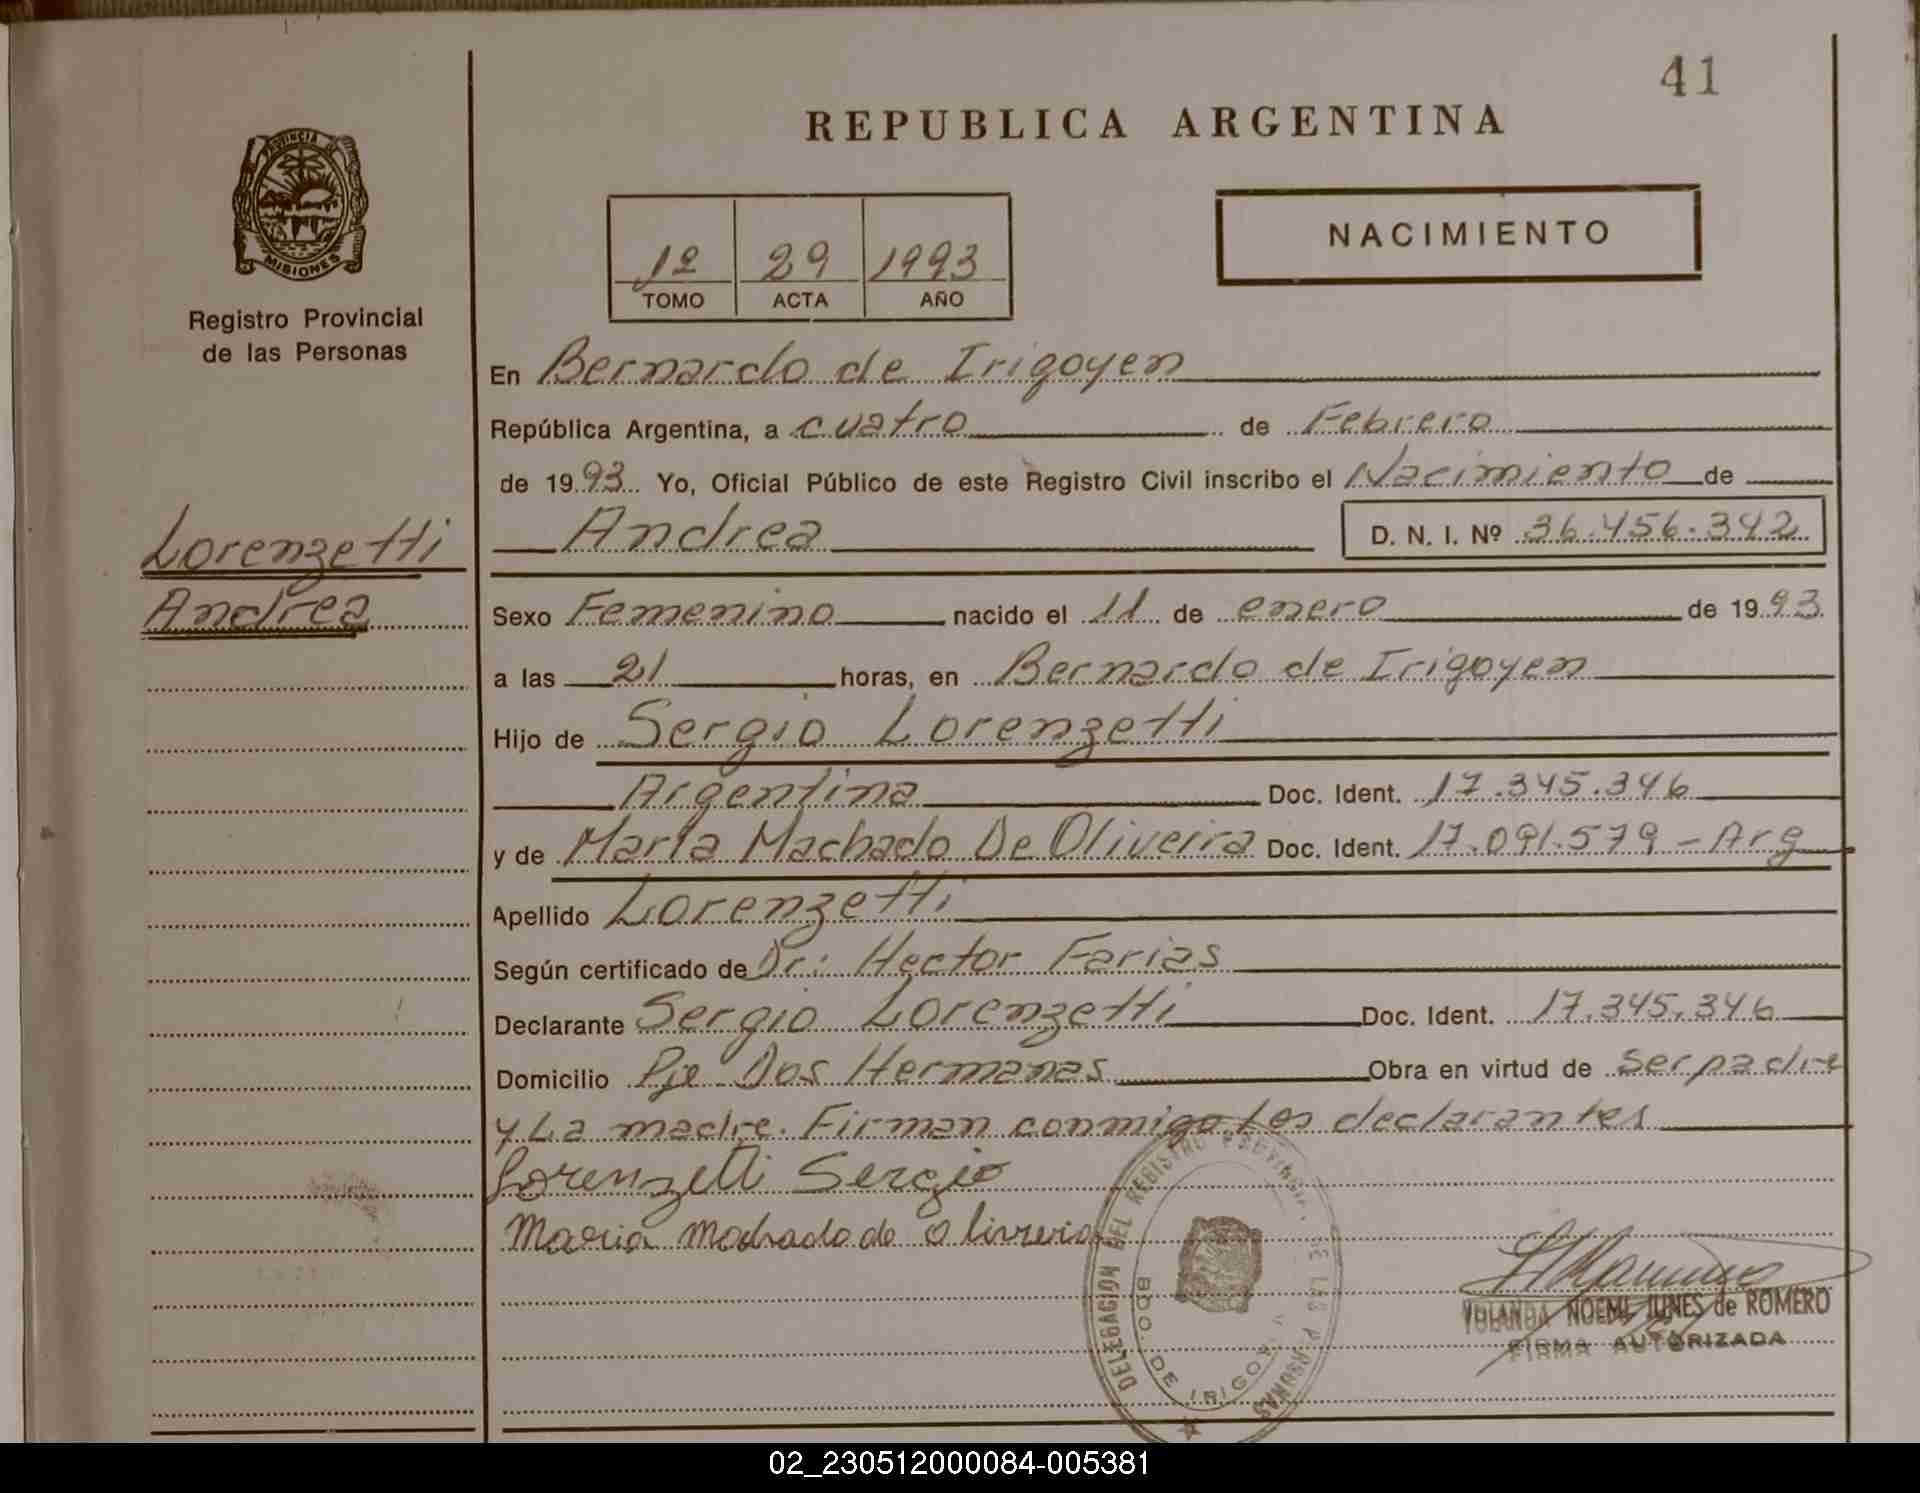 41
REPUBLICA ARGENTINA
PROVINCIA DE
MISIONES
Registro Provincial
de las Personas
1º 29 1993
TOMO ACTA AÑO
NACIMIENTO
En Bernardo de Irigoyen
República Argentina, a cuatro de Febrero
de 1993 Yo, Oficial Público de este Registro Civil inscribo el Nacimiento de
Andrea D. N. I. Nº 36.456.342
Lorenzetti
Andrea
Sexo Femenino nacido el 11 de enero de 1993
a las 21 horas, en Bernardo de Irigoyen
Hijo de Sergio Lorenzetti
Argentina Doc. Ident. 17.345.346
y de María Machado De Oliveira Doc. Ident. 17.091.579 - Arg
Apellido Lorenzetti
Según certificado de Dr: Hector Farias
Declarante Sergio Lorenzetti Doc. Ident. 17.345.346
Domicilio Pje Dos Hermanas Obra en virtud de ser padre
y La madre. Firman conmigo los declarantes
Lorenzetti Sergio
Maria Machado de Oliveria
DELEGACION DEL REGISTRO DE LAS PERSONAS
BDO. DE IRIGOYEN
YOLANDA NOEMI JUNES de ROMERO
FIRMA AUTORIZADA
02_230512000084-005381